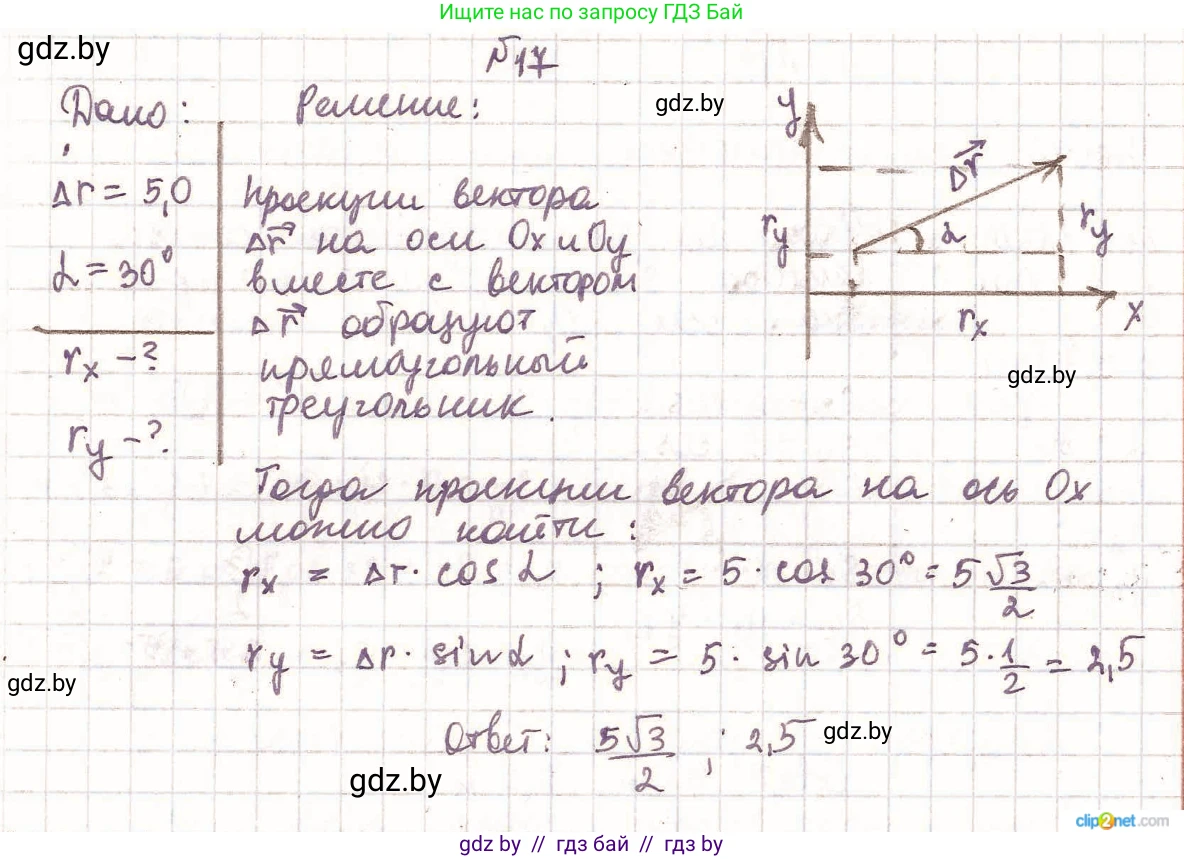 Ищите нас по запросу ГДЗ Бай
gdz.by
№17
Дано:
Решение:
gdz.by
Δr = 5,0
α = 30°
rx -?
ry -?
Проекции вектора
Δr⃗ на оси Ox и Oy
вместе с вектором
Δr⃗ образуют
прямоугольный
треугольник.
y
Δr⃗
ry
α
ry
rx
x
gdz.by
Тогда проекции вектора на ось Ox
можно найти:
rx = Δr · cos α ; rx = 5 · cos 30° = 5 √3/2
ry = Δr · sin α ; ry = 5 · sin 30° = 5 · 1/2 = 2,5
gdz.by
Ответ: 5√3/2 ; 2,5
gdz.by
gdz.by
clip2net.com
gdz.by // гдз бай // gdz by